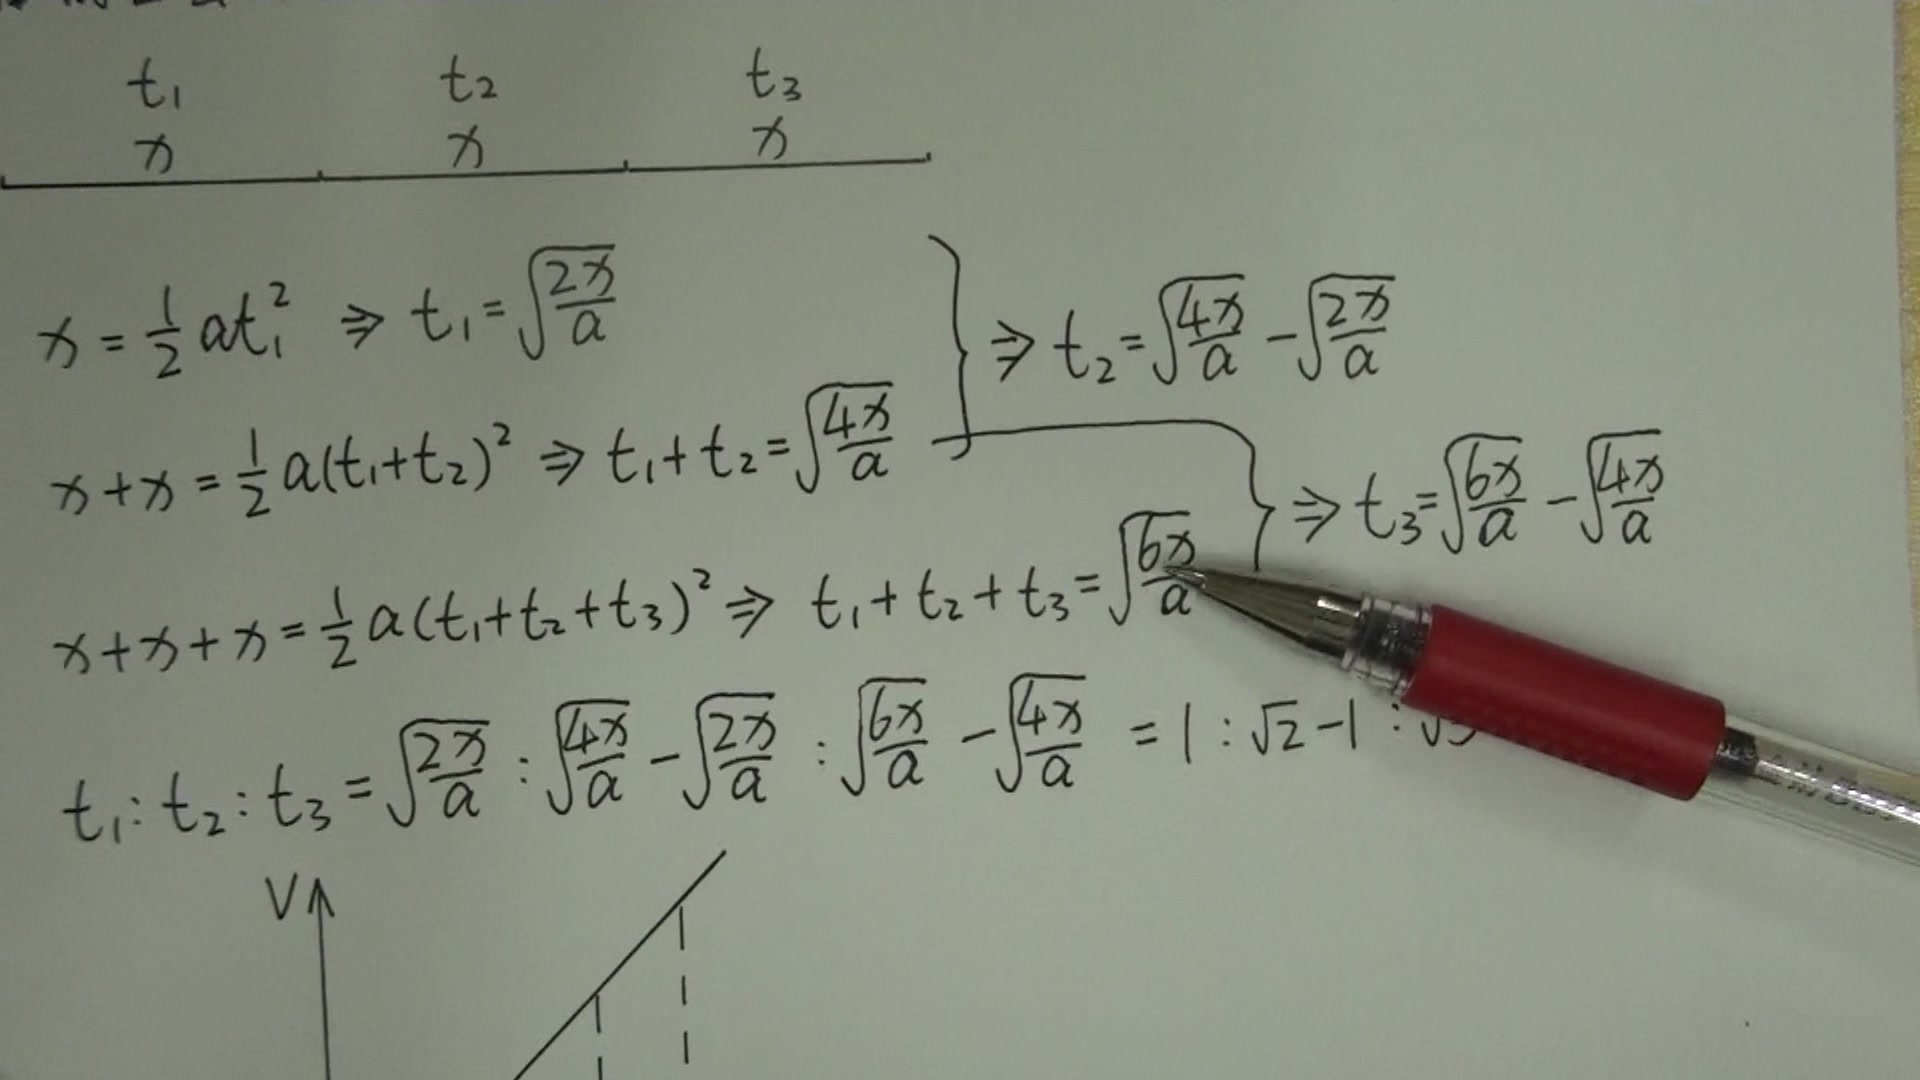 t₁ t₂ t₃
x x x
x = ½ at₁² ⇒ t₁ = √(2x/a)
⇒ t₂ = √(4x/a) − √(2x/a)
x + x = ½ a(t₁+t₂)² ⇒ t₁ + t₂ = √(4x/a)
⇒ t₃ = √(6x/a) − √(4x/a)
x + x + x = ½ a(t₁+t₂+t₃)² ⇒ t₁ + t₂ + t₃ = √(6x/a)
t₁ : t₂ : t₃ = √(2x/a) : √(4x/a) − √(2x/a) : √(6x/a) − √(4x/a) = 1 : √2 − 1 :
V